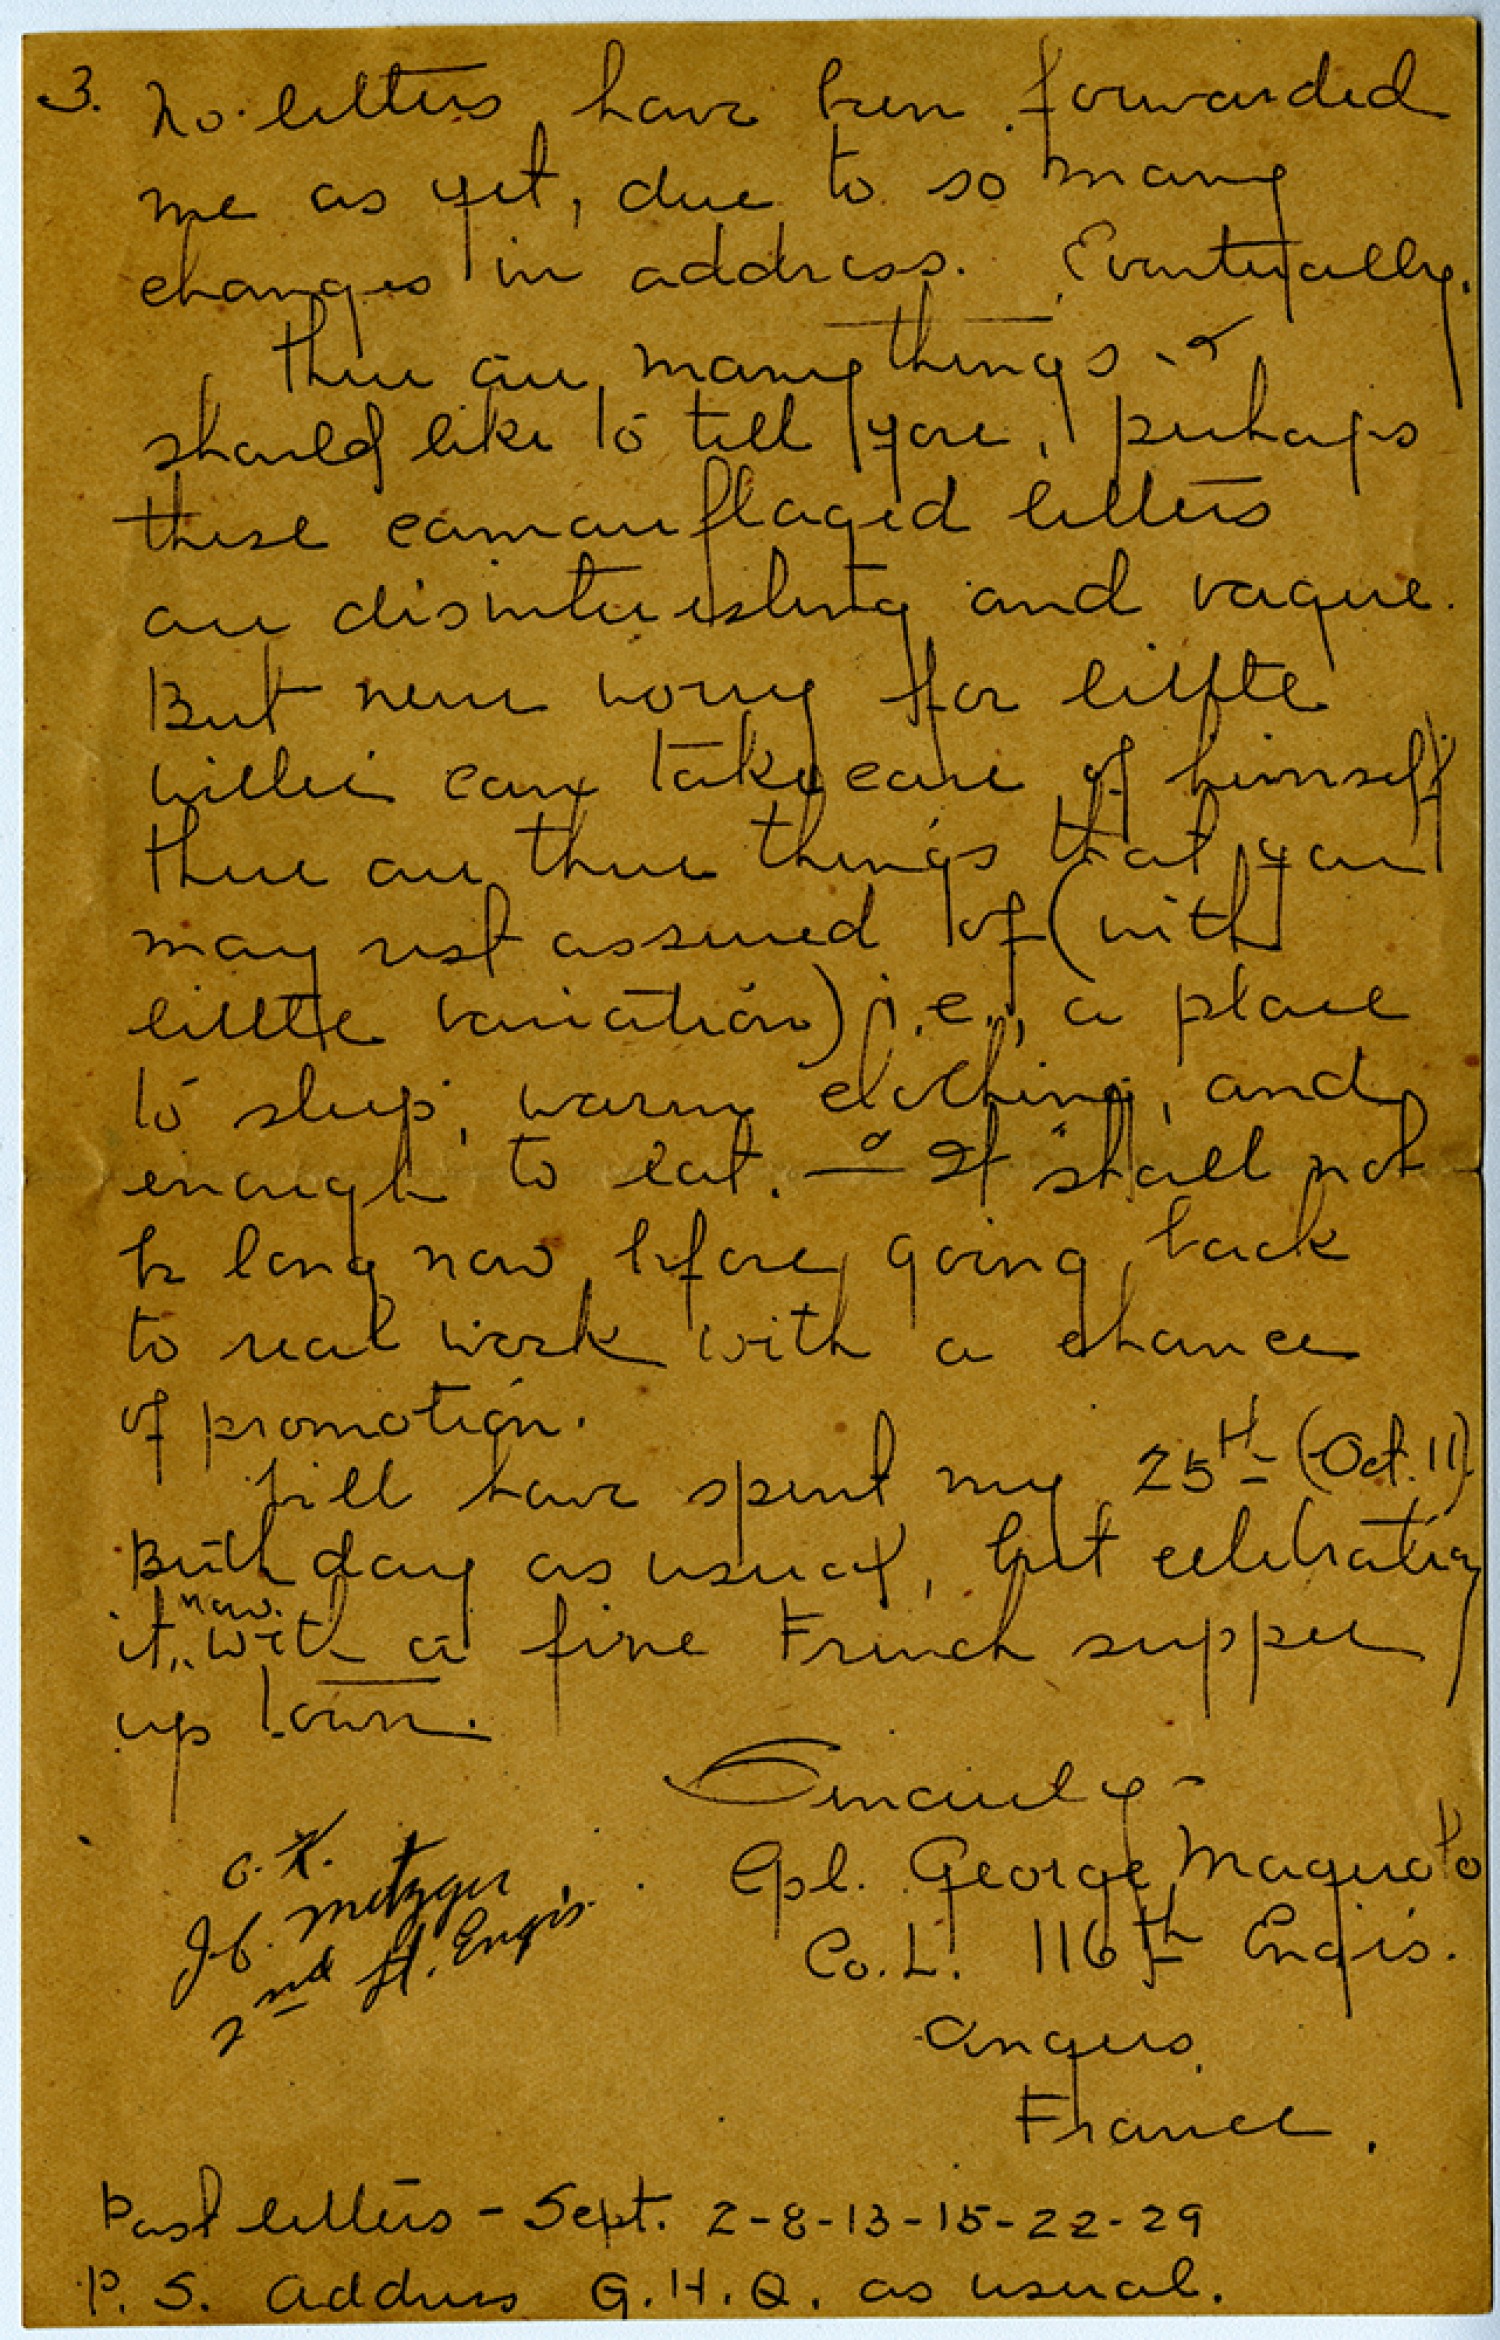 3. No letters have been forwarded
me as yet, due to so many
changes in address. Eventually.
There are many things I
should like to tell you, perhaps
these camouflaged letters
are disinteresting and vague.
But never worry for little
willie can take care of himself
There are three things that you
may rest assured of (with
little variation) i.e., a place
to sleep, warm clothing, and
enough to eat. — It shall not
be long now before going back
to real work with a chance
of promotion.
Will have spent my 25th (Oct. 11)
Birthday as usual, but celebrating
it now with a fine French supper
up town.
Sincerely -
Cpl. George Maguolo
Co. L. 116th Engis.
Angers,
France.
O.K.
J.C. Metzger
2nd Lt. Engis.
Past letters - Sept. 2-8-13-15-22-29
P.S. Address G.H.Q. as usual.